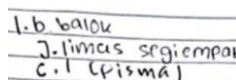 1. b balok
J. limas segiempat
C. 1 (Prisma)